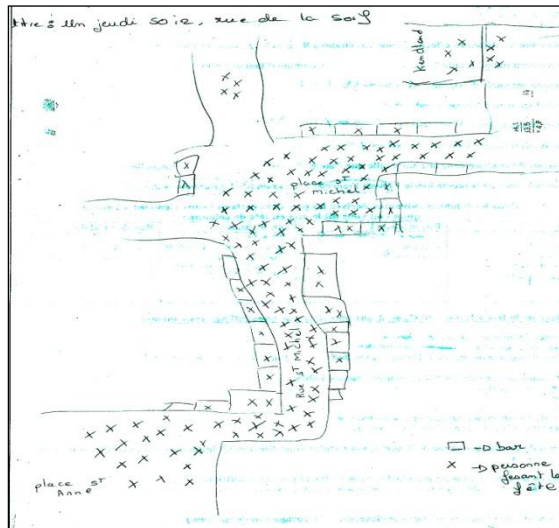 Un jeudi soir, rue de la soif
place st
Michel
Rue st Michel
place st
Anne
-> bar
x -> personne
fesant la
fête